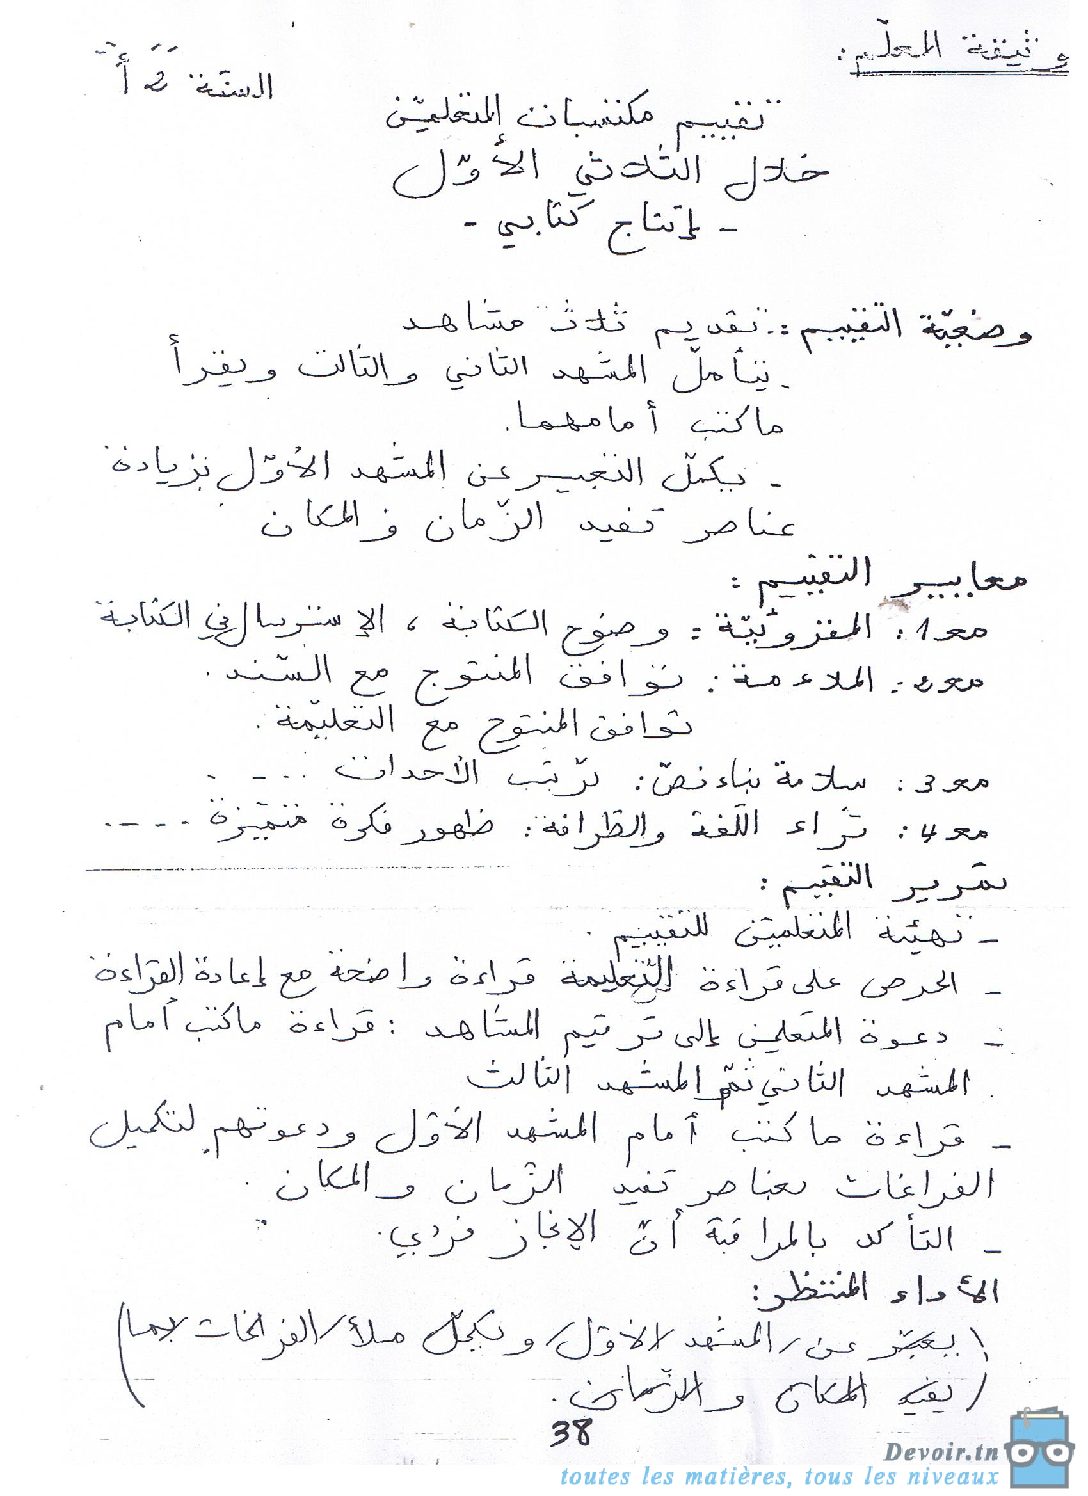 وثيقة المعلّم:
السنة 2 أ
تقييم مكتسبات المتعلمين
خلال الثلاثي الأوّل
- إنتاج كتابي -
وضعيّة التقييم: - تقديم ثلاث مشاهد
- يتأمّل المشهد الثاني والثالث ويقرأ
ما كتب أمامهما.
- يكمّل التعبير عن المشهد الأوّل بزيادة
عناصر تفيد الزّمان والمكان
معايير التقييم:
مع1: المقروئيّة: وضوح الكتابة، الإسترسال في الكتابة
مع2: الملاءمة: توافق المنتوج مع السّند.
توافق المنتوج مع التعليمة.
مع3: سلامة بناء نصّ: ترتّب الأحداث ....
مع4: ثراء اللّغة والطّرافة: ظهور فكرة متميّزة ....
تمرير التقييم:
- تهيئة المتعلمين للتقييم.
- الحرص على قراءة التّعليمة قراءة واضحة مع إعادة القراءة
- دعوة المتعلمين إلى ترقيم المشاهد: قراءة ما كتب أمام
المشهد الثاني ثمّ المشهد الثالث
- قراءة ما كتب أمام المشهد الأوّل ودعوتهم لتكميل
الفراغات بعناصر تفيد الزّمان والمكان.
- التأكد بالمراقبة أنّ الإنجاز فردي.
الأداء المنتظر:
(يعبّر عن المشهد الأوّل ويكمّل ملأ الفراغات بما
يفيد المكان والزّمان.)
38
Devoir.tn
toutes les matières, tous les niveaux